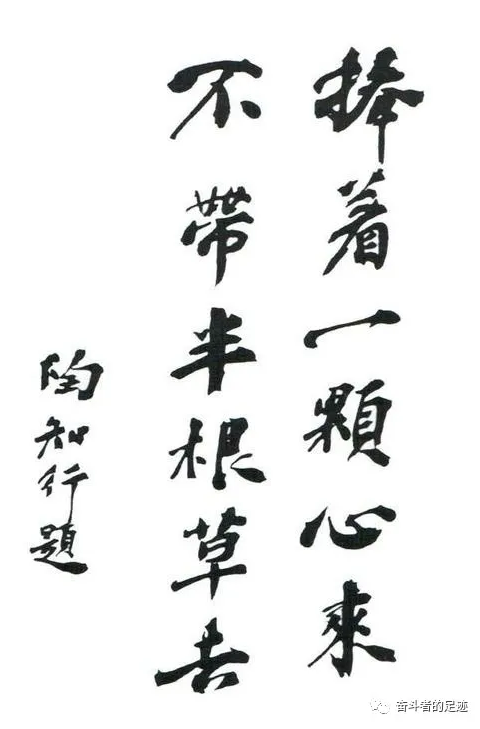 捧着一顆心來
不帶半根草去
陶知行題
奋斗者的足迹